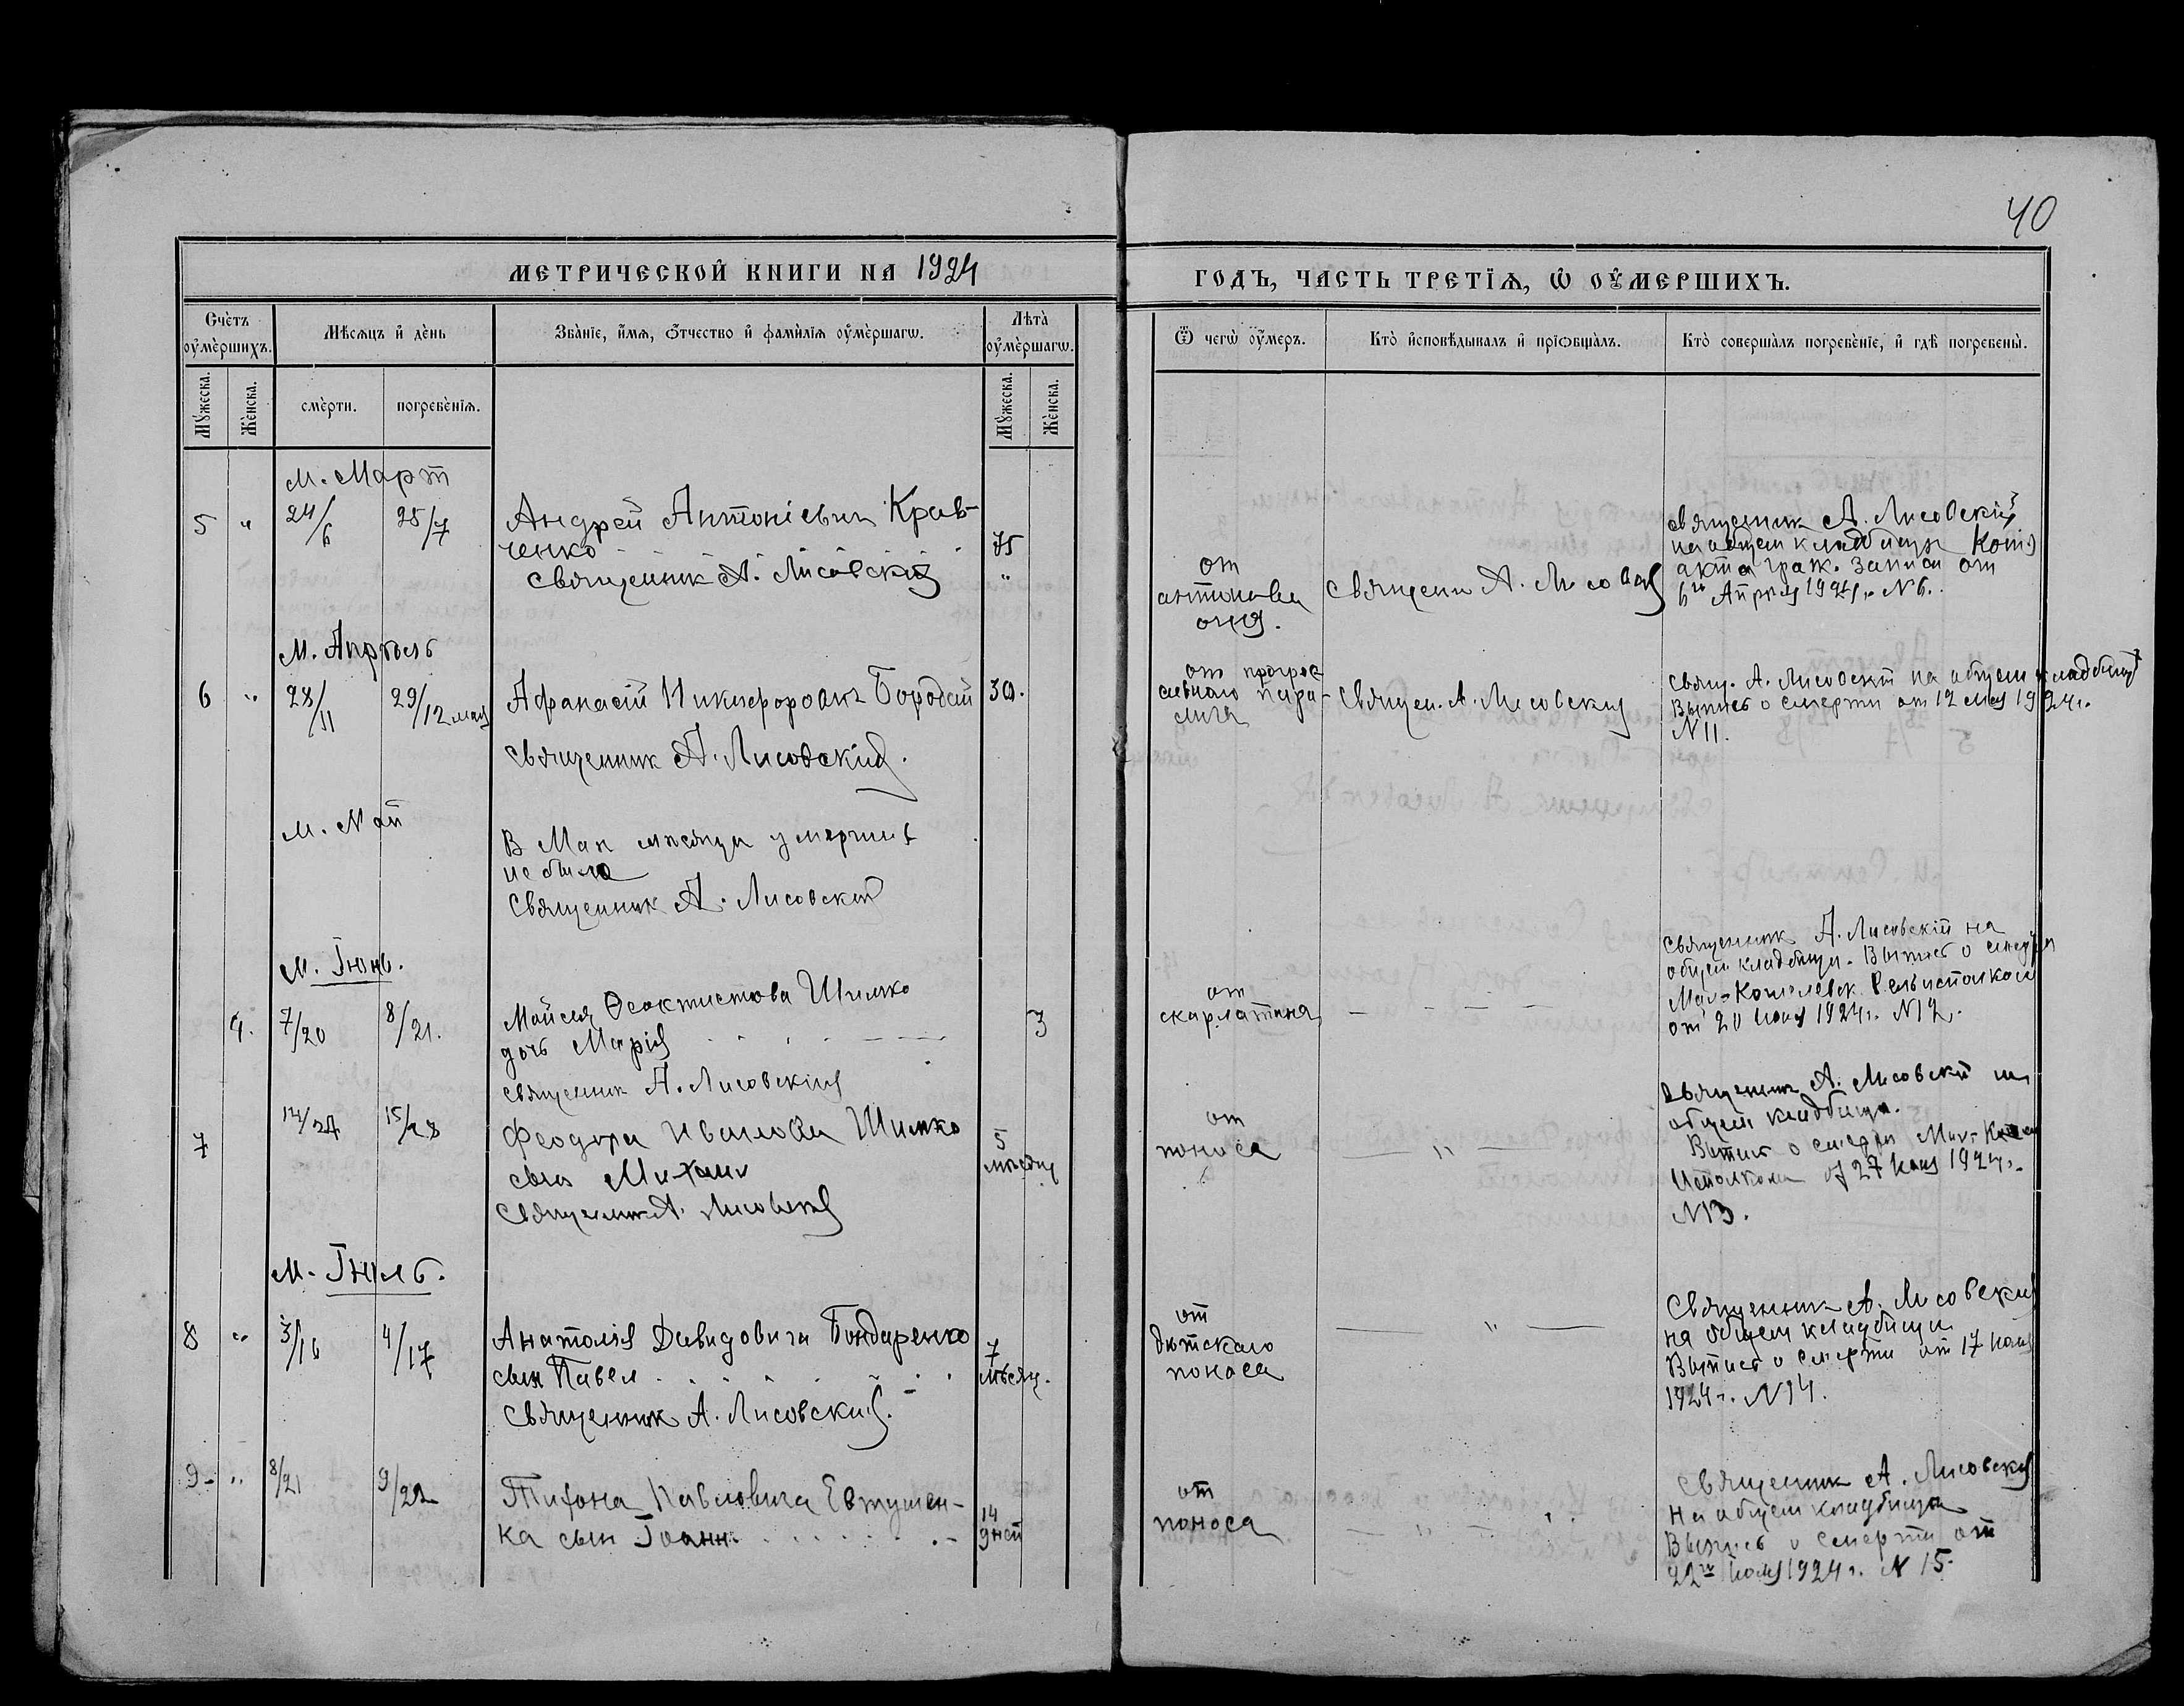 40
МЕТРИЧЕСКОЙ КНИГИ НА 1924
ГОДЪ, ЧАСТЬ ТРЕТІѦ, Ѡ ОУМЕРШИХЪ.
Счетъ оумершихъ.
Мѣсяцъ и день
Званіе, имя, отчество и фамилія оумершагѡ.
Лѣта оумершагѡ.
Ѿ чегѡ оумеръ.
Кто исповѣдывалъ и пріобщалъ.
Кто совершалъ погребеніе, и гдѣ погребены.
Мужеска.
Женска.
смерти.
погребенія.
Мужеска.
Женска.
М. Март
5 " 24/6 25/7
Андрей Антоніевич Крав-
ченко
священник А. Лисовскій
75
"
от
антонова
огня.
Священ А. Лисовск
священник А. Лисовскій
на общем кладбище
акта граж. записи от
6го Апреля 1924 г. N 6.
М. Апрѣль
6 " 28/11 29/12 мая
Афанасій Никифорович Бородай
30.
священник А. Лисовскій.
от прогрес
сивнаго пара-
лича
Священ. А. Лисовскій
Свящ. А. Лисовскій на общем кладбищѣ
Выпись о смерти от 12 мая 1924 г.
N 11.
М. Май
В Маѣ мѣсяцѣ умерших
не было
Священник А. Лисовскій
М. Іюнь.
4. 7/20 8/21.
Мойсея Ѳеоктистова Шимко
дочь Марія
3
священник А. Лисовскій
от
скарлатины
Священник А. Лисовскій на
общем кладбищѣ. Выпись о смерти
от 20 июня 1924 г. N 12.
7 14/27 15/28
Феодора Иванова Шимко
сын Михаил
5
мѣсяц
Священник А. Лисовскій
от
поноса
— " —
Священник А. Лисовскій на
общем кладбище.
Выпись о смерти
Исполкома от 27 июня 1924 г.
N 13.
М. Іюль.
8 " 3/16 4/17
Анатолія Давидовича Бондаренко
сын Павел
7
мѣсяц.
Священник А. Лисовскій.
от
дѣтскаго
поноса
— " —
Священник А. Лисовскій
на общем кладбищѣ
Выпись о смерти от 17 июля
1924 г. N 14.
9 - " 8/21 9/22
Тифона Павловича Евтушен-
ка сын Іоанн.
14
дней
от
поноса
— " —
Священник А. Лисовскій
На общем кладбище
Выпись о смерти от
22го июля 1924 г. N 15.